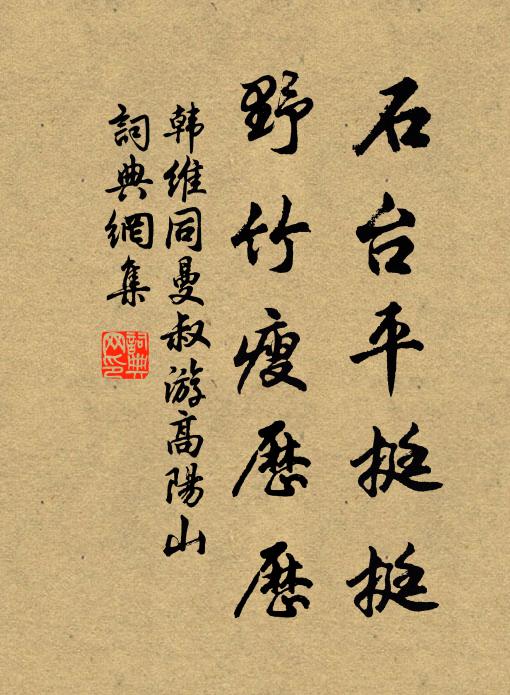 石台平挺挺
野竹瘦歷歷
韩維同曼叔游高陽山
詞典網集
詞典網印